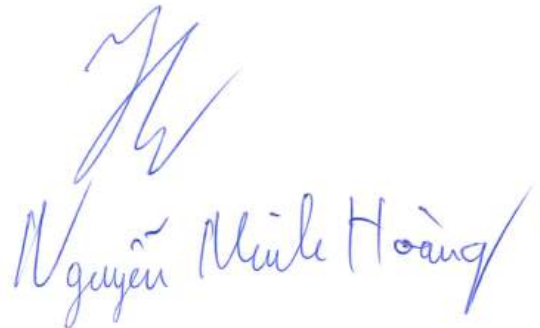 Nguyễn Minh Hoàng